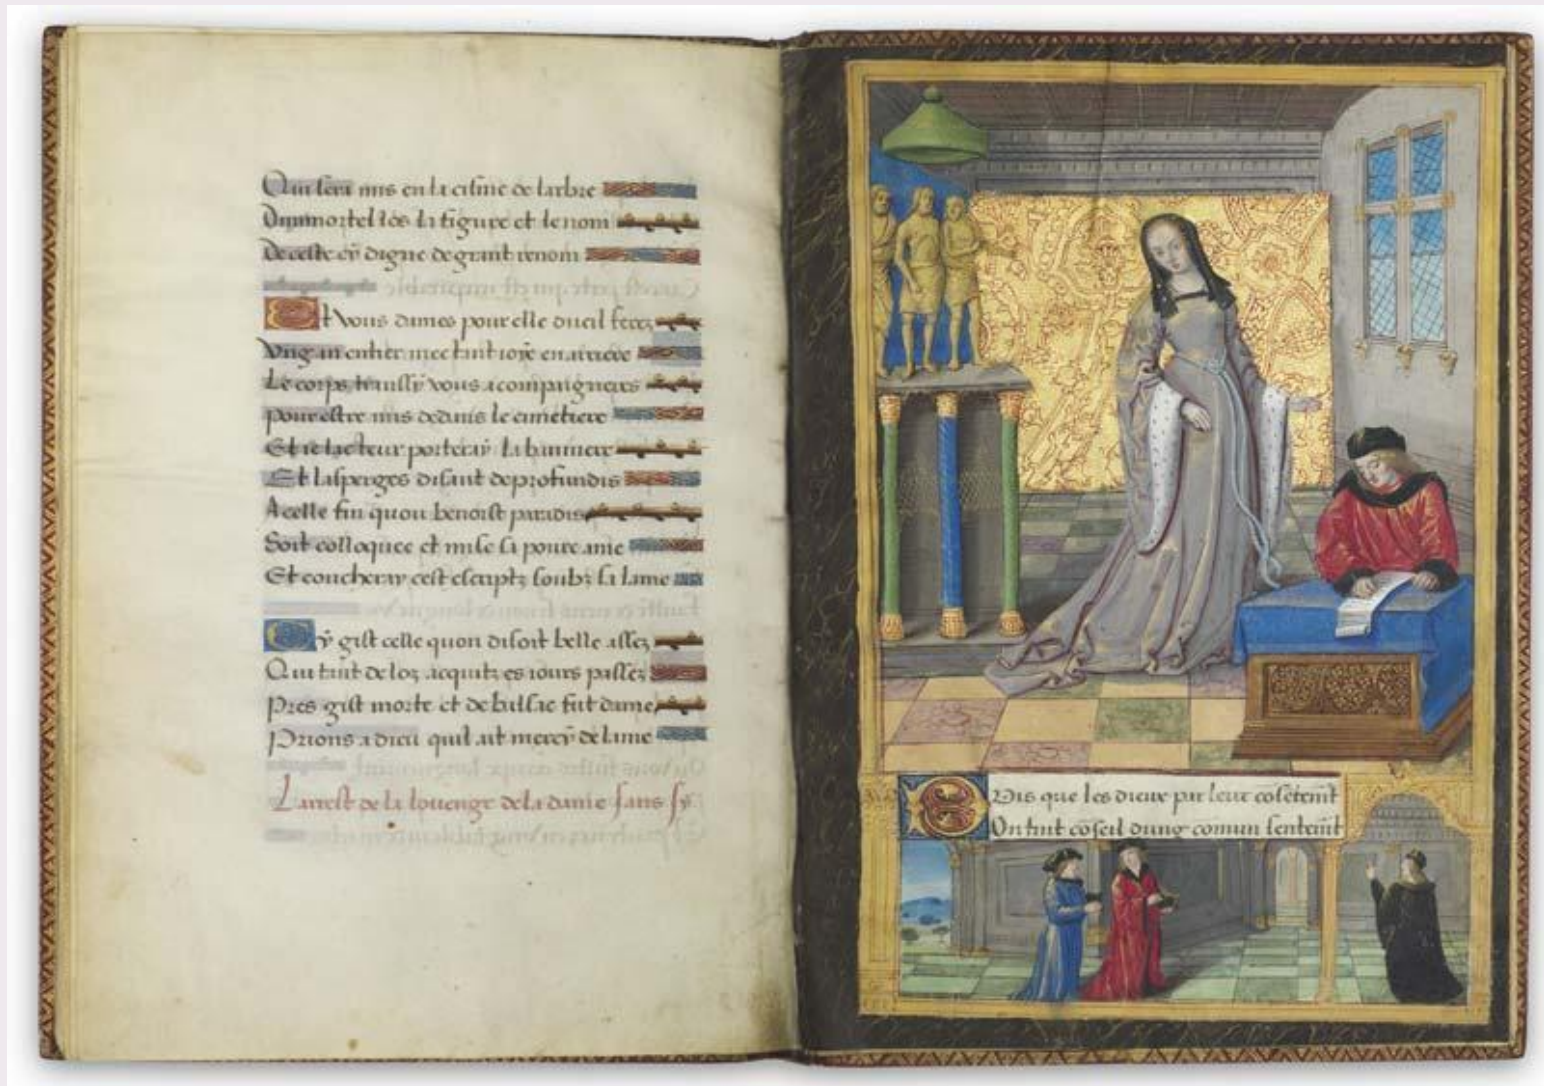 Qui sera mis en la cisme de larbre
Dimmortel los la figure et le nom
De ceste cy digne de grant renom
Et vous dames pour elle dueil ferez
Ung an entier mectant ioye en arriere
Le corps aussy vous acompaignerez
pour estre mis dedans le cimetiere
Et ie lacteur porteray la banniere
Et lasperges disant de profundis
A celle fin quou benoist paradis
Soit colloquee et mise sa poure ame
Et coucheray cest escript soubz sa lame
Cy gist celle quon disoit belle assez
Qui tant de loz acquit es iours passez
Pres gist morte et de balsac fut dame
Prions a dieu quil ait mercy de lame
Larrest de la louenge de la dame sans sy
Dis que les dieux par leur
Ont tint coseil dung comun